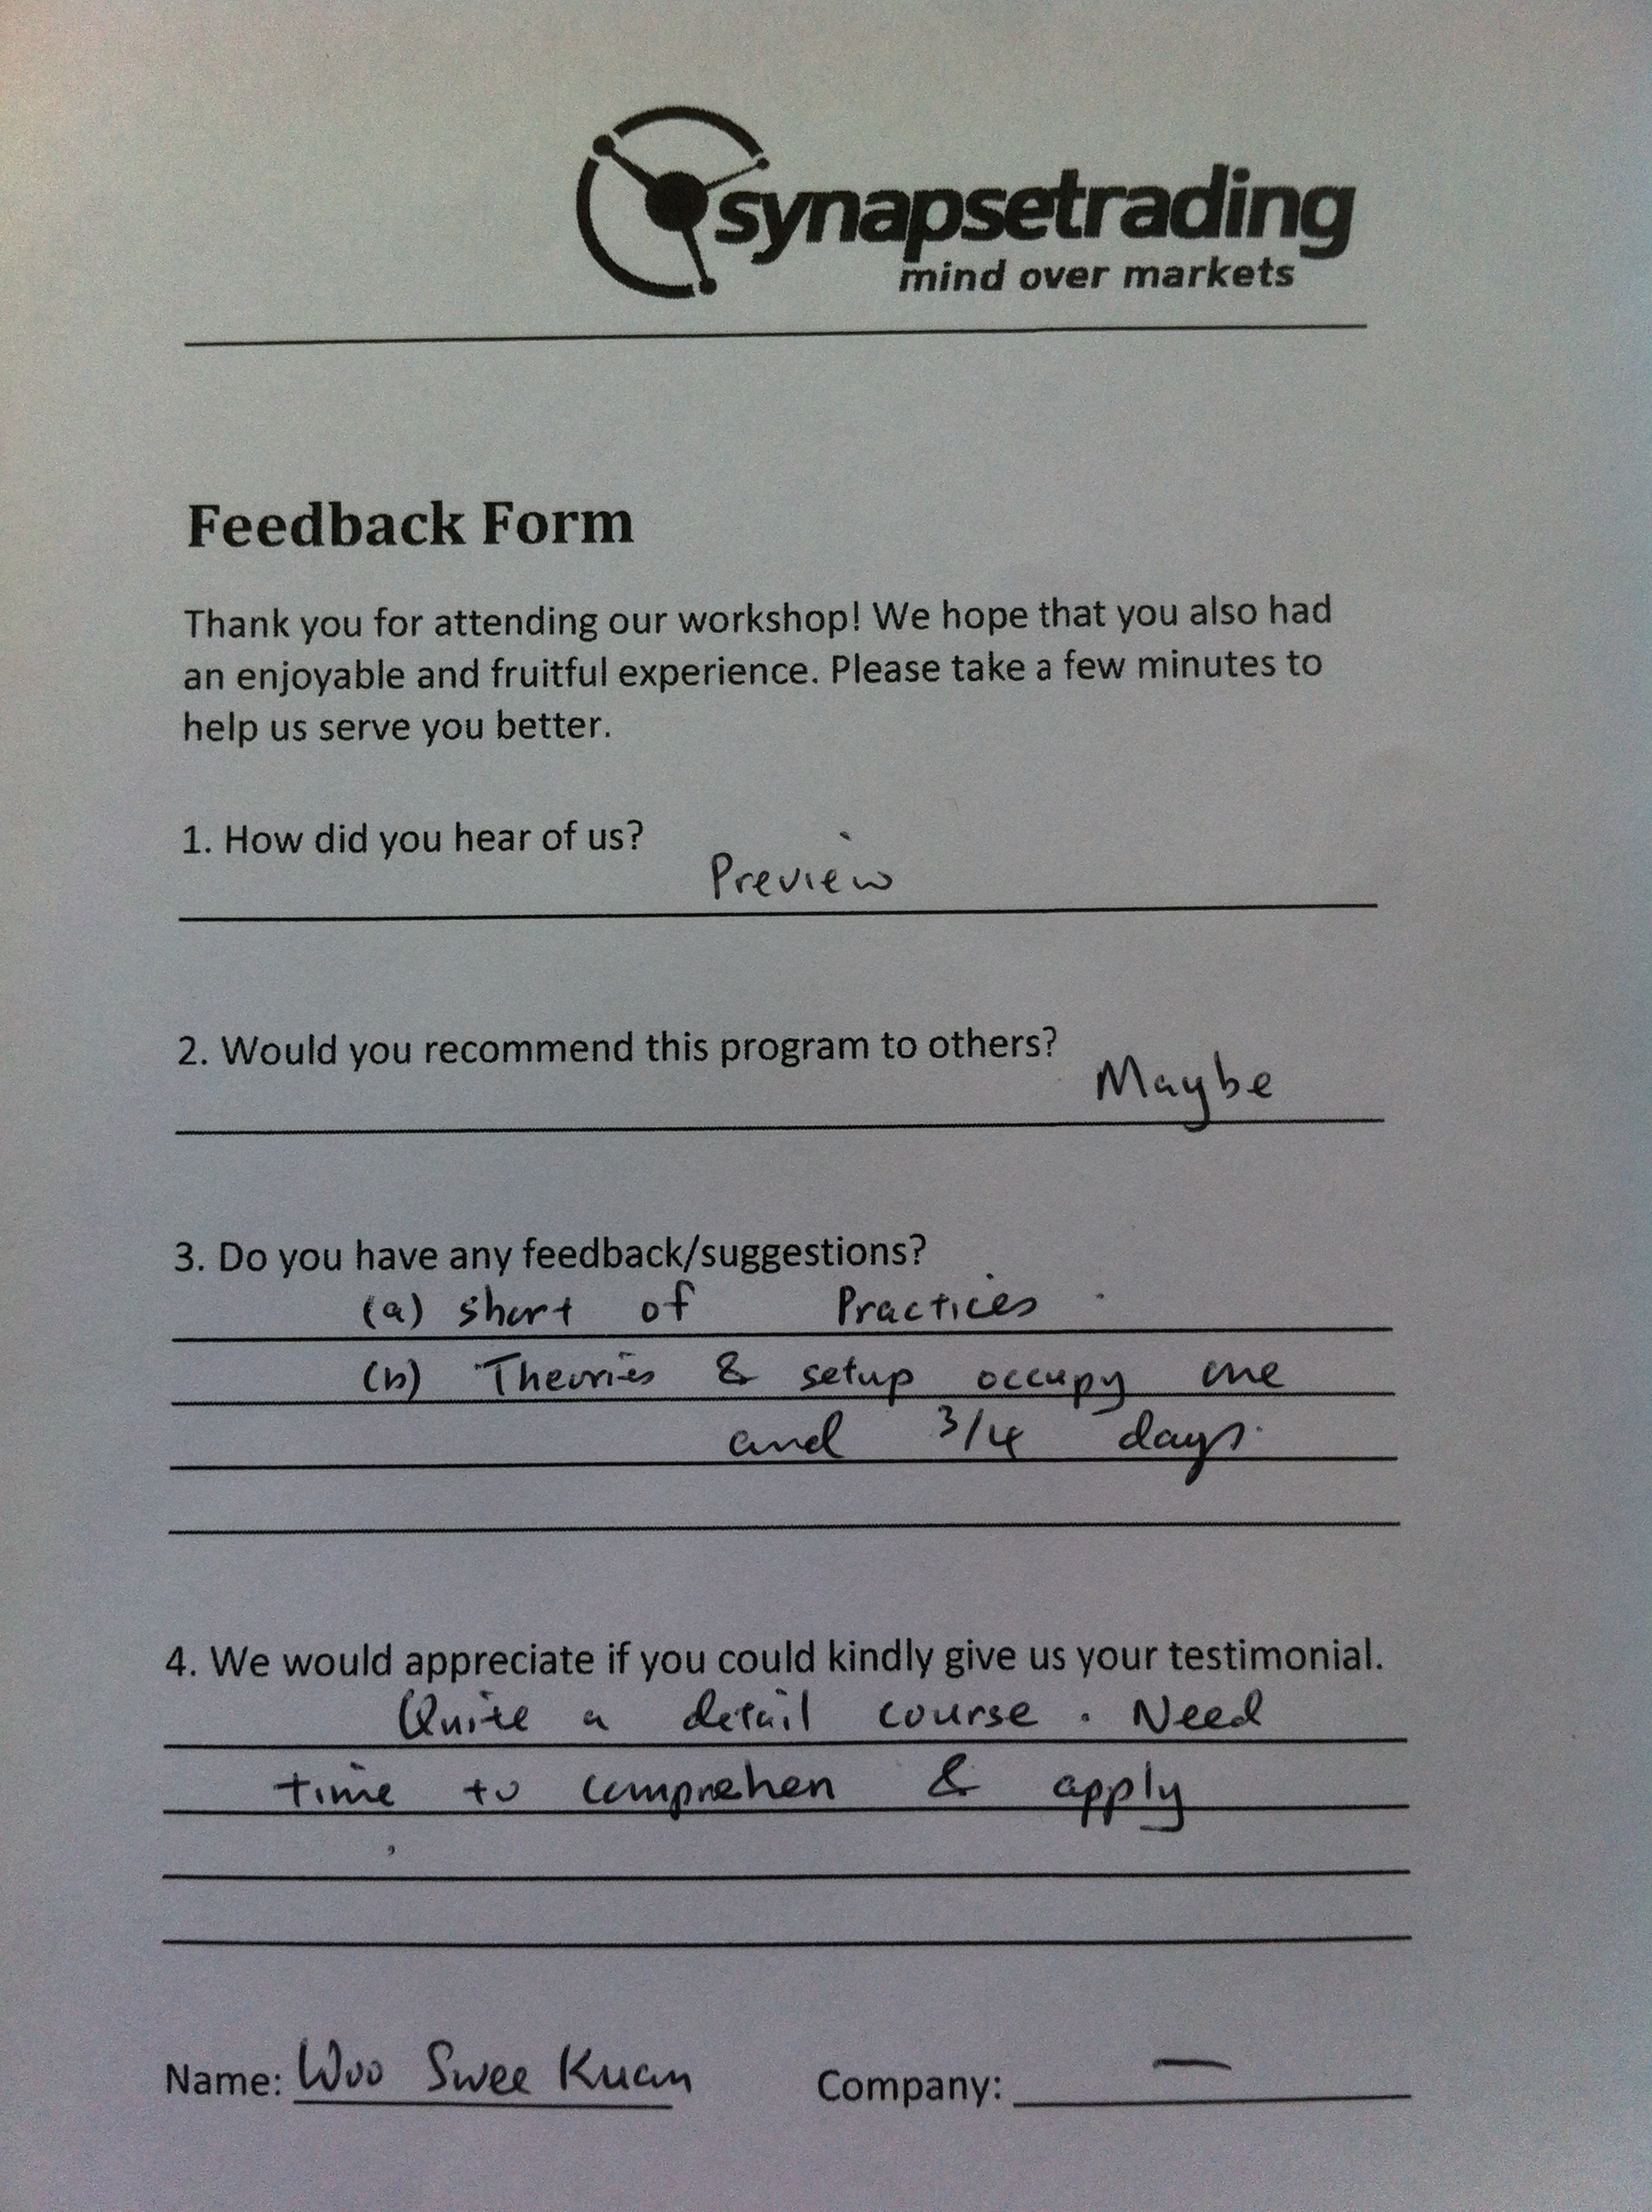 synapsetrading
mind over markets
Feedback Form
Thank you for attending our workshop! We hope that you also had
an enjoyable and fruitful experience. Please take a few minutes to
help us serve you better.
1. How did you hear of us?
Preview
2. Would you recommend this program to others?
Maybe
3. Do you have any feedback/suggestions?
(a) short of Practices.
(b) Theories & setup occupy one
and 3/4 days.
4. We would appreciate if you could kindly give us your testimonial.
Quite a detail course. Need
time to comprehen & apply
Name: Woo Swee Kuan Company: —